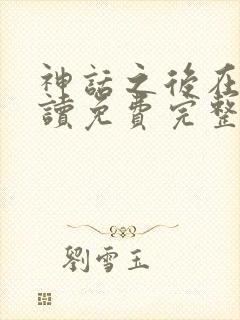 神話之後在
讀免費完整
劉雪玉